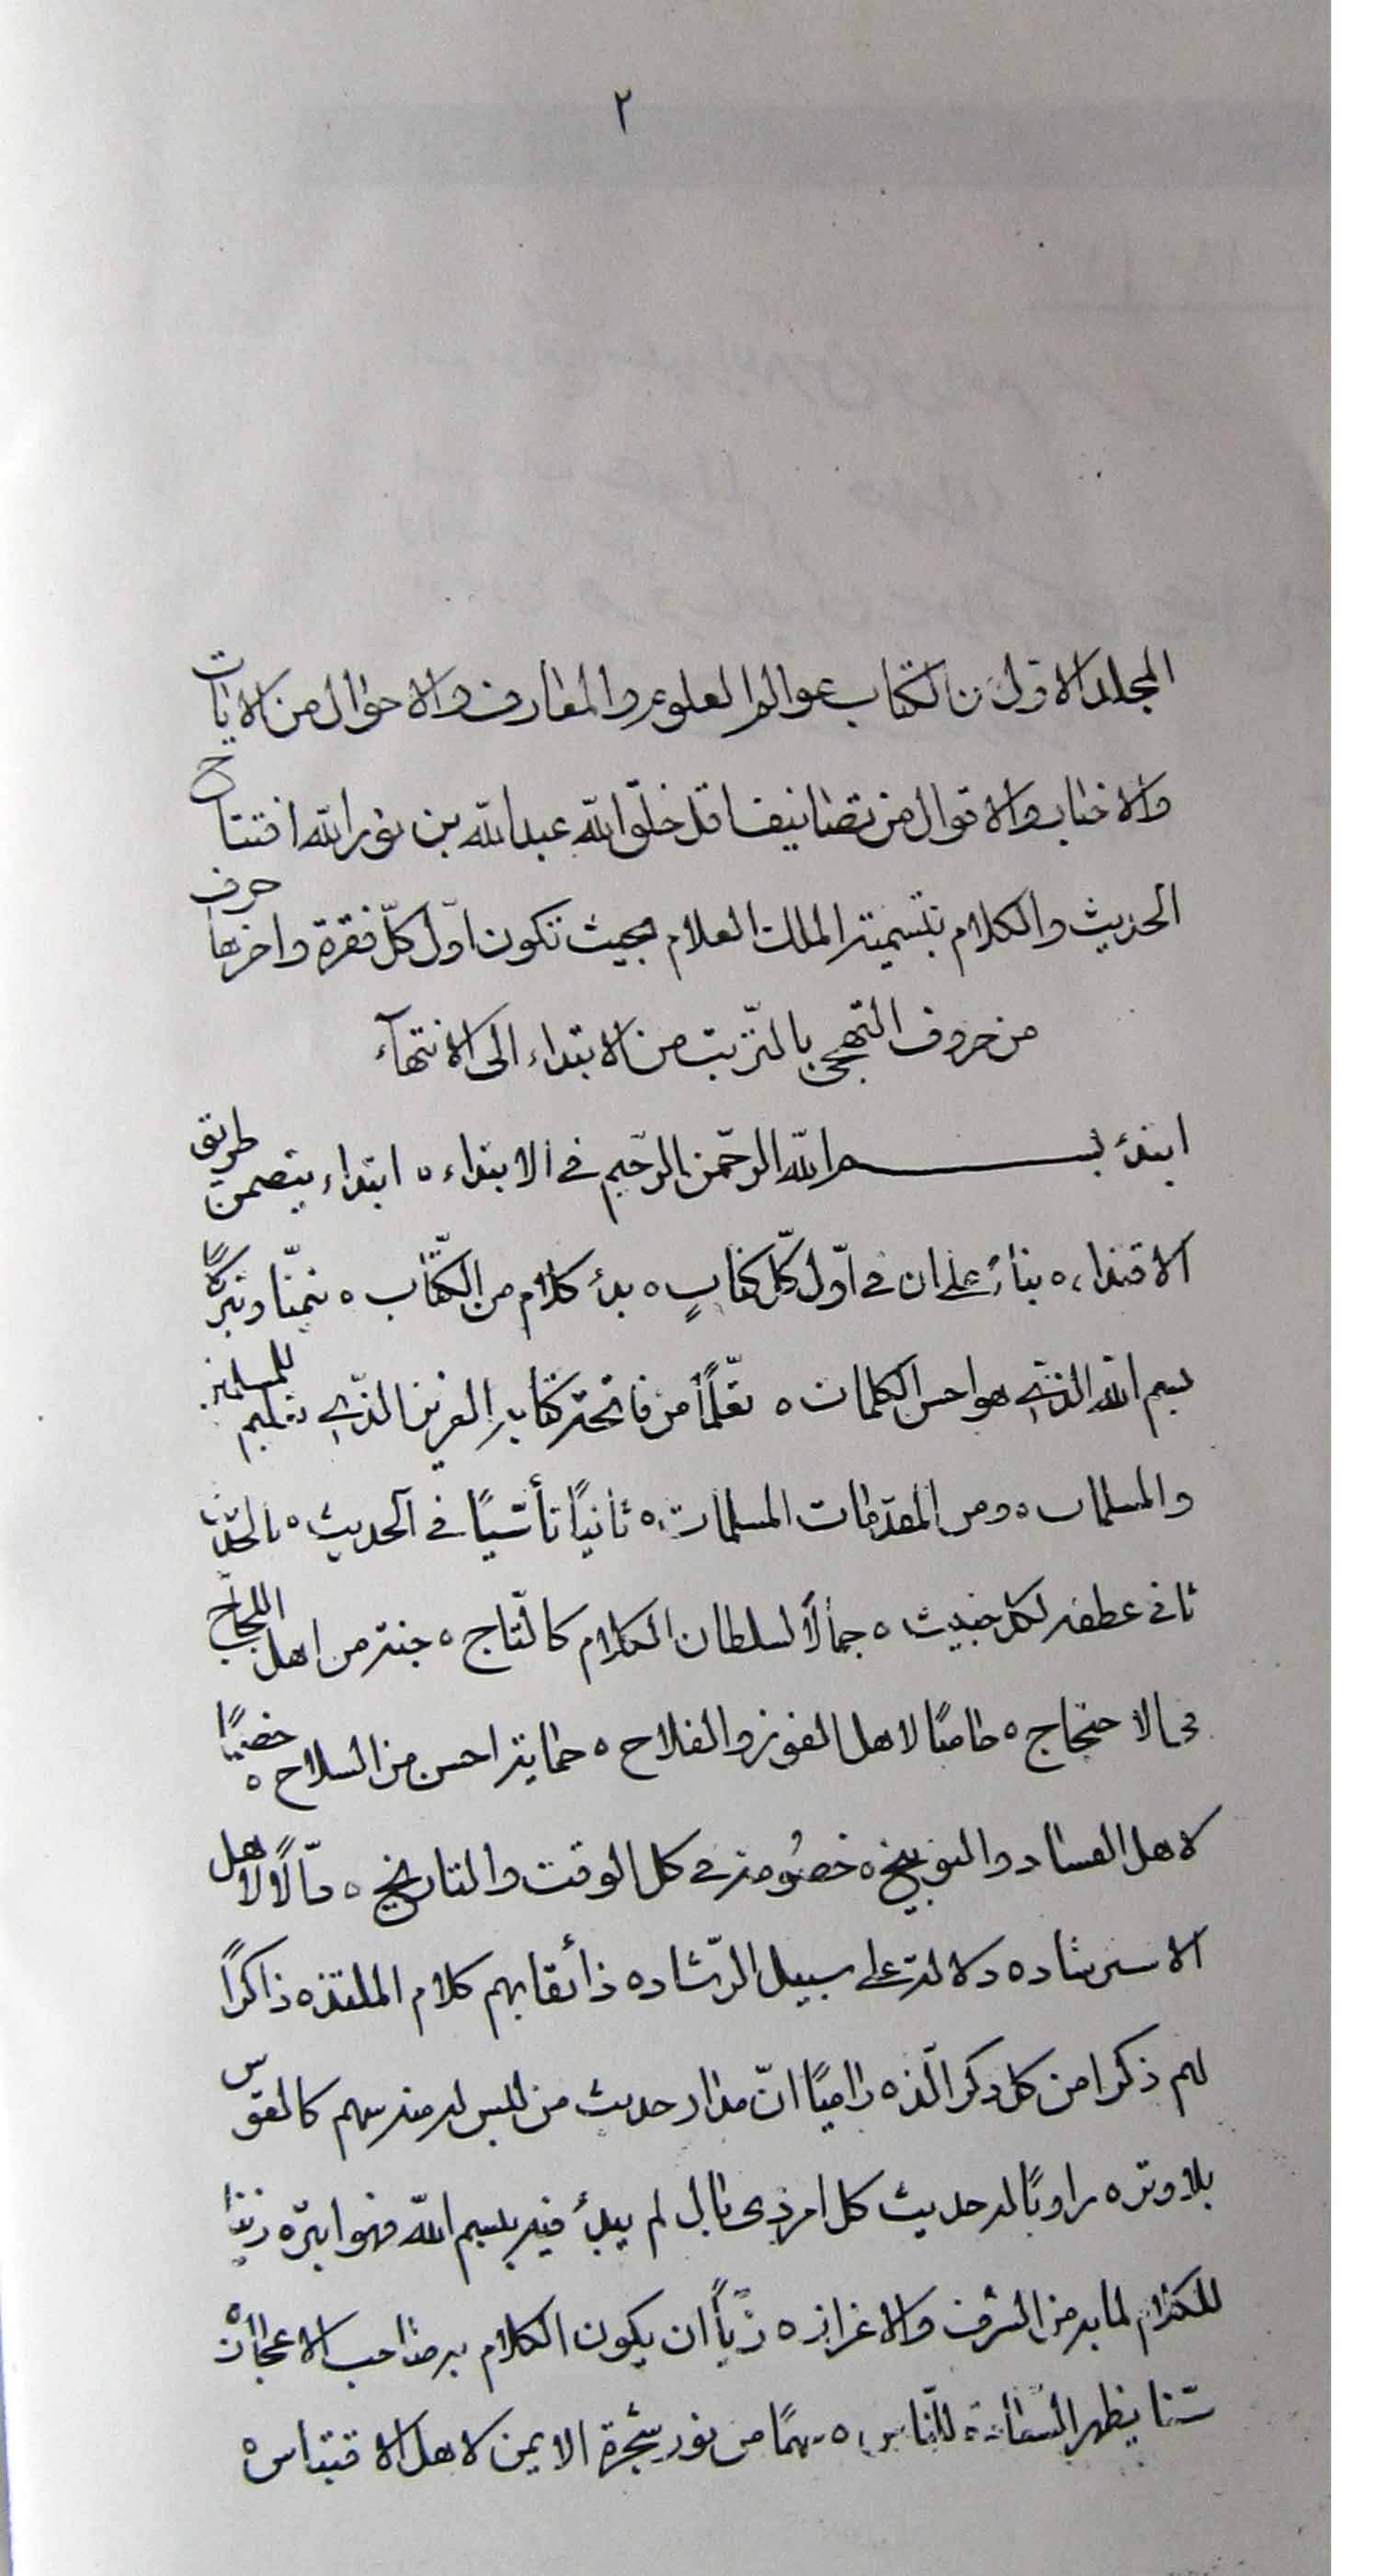 ٢
المجلد الاول من الكتاب عوالم العلوم والمعارف والاحوال من الايات
والاخبار والاقوال من تصانيف اقل خلق الله عبدالله بن نورالله افتتاح
الحديث والكلام بتسمية الملك العلام بحيث تكون اوّل كلّ فقرة واخرها حرف
من حروف التهجى بالترتيب من الابتداء الى الانتهآء
ابتدئ بسم الله الرحمن الرحيم فى الابتداء ٥ ابتداء يتضمن طريق
الاقتداء ٥ بناءً على ان فى اوّل كلّ كتابٍ ٥ بدء كلام من الكتاب ٥ تيمّنا وتبرّكًا
بسم الله الذى هو احسن الكلمات ٥ تعلّمًا من فاتحة كتابه العزيز الذى تعليم للمسلمين
والمسلمات ٥ ومن المقدمات المسلمات ٥ ثانيًا تأسّيًا فى الحديث ٥ بالحديث
ثانى عطفه لكل خبيث ٥ جمالًا لسلطان الكلام كالتّاج ٥ جنة من اهل اللجاج
فى الاحتجاج ٥ حاميًا لاهل الفوز والفلاح ٥ حماية احسن من السلاح ٥ خصيًا
لاهل الفساد والتوبيخ ٥ خصومة فى كل الوقت والتاريخ ٥ دالًا لاهل
الاسترشاد ٥ دلالة على سبيل الرّشاد ٥ ذائقا بهم كلام الملتذ ٥ ذاكرًا
لهم ذكرا من كل ذكر الّذ ٥ راميًا انّ مدار حديث من ليس له منه سهم كالقوس
بلا وتر ٥ راويًا له حديث كل امر ذى بال لم يبدأ فيه ببسم الله فهو ابتر ٥ زينا
للكلام لما به من الشرف والاعزاز ٥ زيًّا ان يكون الكلام به صاحب الاعجاز ٥
سنا يظهر للنّاس ٥ سهمًا من نور شجرة الايمن لاهل الاقتباس ٥